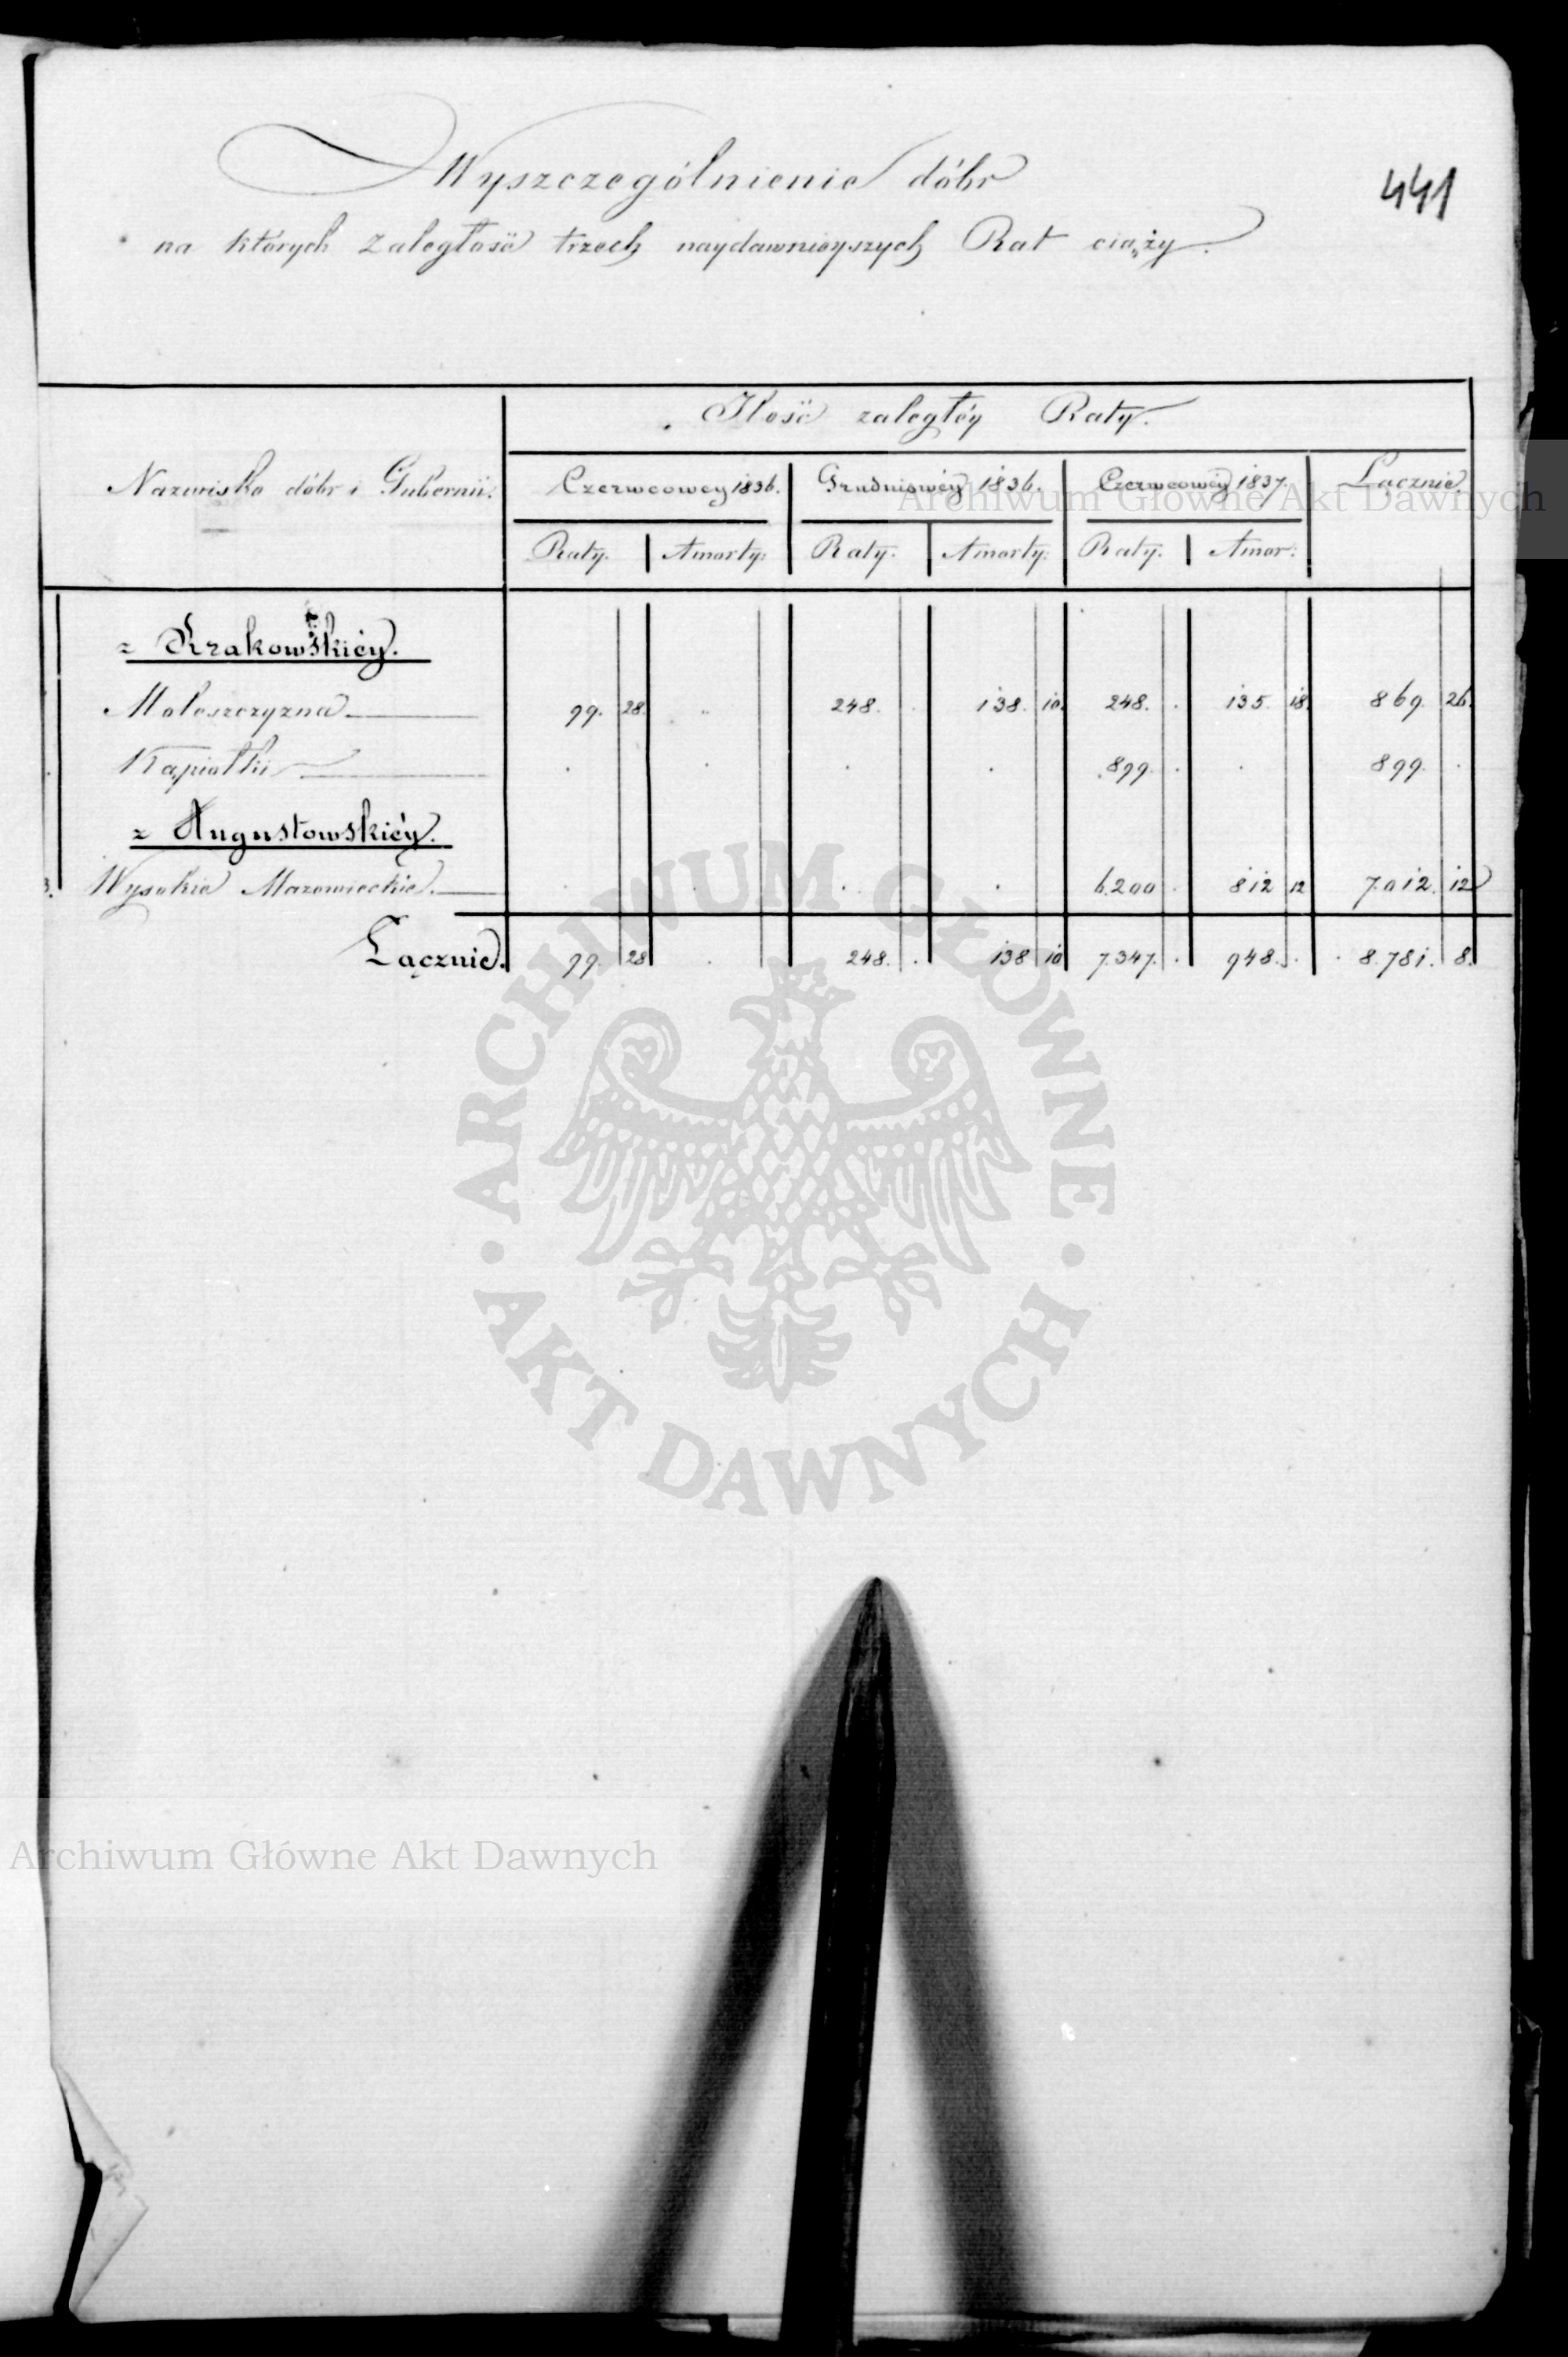 441
Wyszczególnienie dóbr
na których Zaległość trzech naydawnieyszych Rat ciąży.
Ilość zaległéy Raty.
Nazwisko dóbr i Gubernii. Czerwcowey 1836. Grudniowéy 1836. Czerwcowéy 1837. Łącznie
Raty. Amorty: Raty. Amorty: Raty. Amor:
z Krakowskiéy.
Moleszczyzna 99. 28. 248. 138. 10. 248. 135. 18. 869. 26.
Kąpiołki 899. 899.
z Augustowskiéy.
3. Wysokie Mazowieckie. 6.200 812 12 7.012. 12
Łącznie. 99. 28 248. 138 10 7.347. 948. 8.781. 8.
ARCHIWUM GŁÓWNE AKT DAWNYCH
Archiwum Główne Akt Dawnych
Archiwum Główne Akt Dawnych